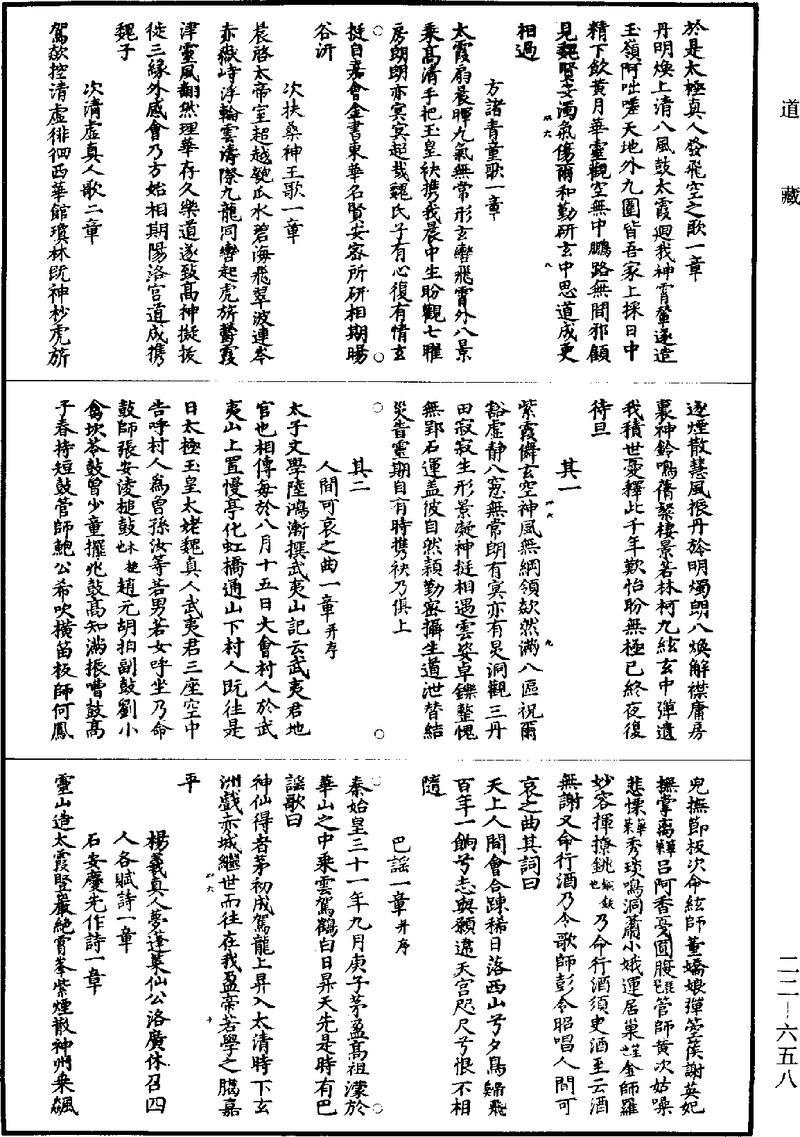 道藏
於是太極真人發飛空之歌一章
丹明煥上清八風鼓太霞迴我神霄輦遂造
玉嶺阿咄嗟天地外九圍皆吾家上採日中
精下飲黃月華靈觀空無中鵬路無間邪顧
見魏賢安濁氣傷爾和勤研玄中思道成更
相過
方諸青童歌一章
太霞扇晨暉九氣無常形玄轡飛霄外八景
乘高清手把玉皇袂携我晨中生盼觀七曜
房朗朗亦冥冥超哉魏氏子有心復有情玄
挺自嘉會金書東華名賢安密所研相期暘
谷汧
次扶桑神王歌一章
晨啓太帝室超越匏瓜水碧海飛翠波連岑
亦嶽峙浮輪雲濤際九龍同轡起虎旂鬱霞
津靈風翻然理華存久樂道遂致高神擬拔
徙三緣外感會乃方始相期陽洛宮道成携
魏子
次清虛真人歌二章
駕欻控清虛徘徊西華館瓊林既神杪虎旂
逐煙散慧風振丹旍明燭朗八煥解襟庸房
裏神鈴鳴倩粲棲景若林柯九絃玄中彈遺
我積世憂釋此千年歎怡盼無極已終夜復
待旦
其一
紫霞儛玄空神風無綱領欻然滿八區祝爾
豁虛靜八窻無常朗有冥亦有炅洞觀三丹
田寂寂生形景凝神挺相遇雲姿卓鑠整愧
無郢石運蓋彼自然穎勤密攝生道泄替結
災眚靈期自有時携袂乃俱上
其二
人間可哀之曲一章并序
太子文學陸鴻漸撰武夷山記云武夷君地
官也相傳每於八月十五日大會村人於武
夷山上置慢亭化虹橋通山下村人既往是
日太極玉皇太姥魏真人武夷君三座空中
告呼村人為曾孫汝等若男若女呼坐乃命
鼓師張安淩槌鼓趙元胡拍副鼓劉小
禽坎苓鼓曾少童擺兆鼓高知滿振嘈鼓高
子春持短鼓管師鮑公希吹橫笛板師何鳳
兒撫節板次命絃師董嬌娘彈箜篌謝英妃
撫掌离呂阿香戞圓腹管師黃次姑噪
悲慄秀琰鳴洞簫小娥運居巢金師羅
妙容揮撩銚乃命行酒須臾酒至云酒
無謝又命行酒乃令歌師彭令昭唱人間可
哀之曲其詞曰
天上人間會合踈稀日落西山兮夕鳥歸飛
百年一餉兮志與願違天宮咫尺兮恨不相
隨
巴謠一章并序
秦始皇三十一年九月庚子茅盈高祖濛於
華山之中乘雲駕鶴白日昇天先是時有巴
謠歌曰
神仙得者茅初成駕龍上昇入太清時下玄
洲戲赤城繼世而往在我盈帝若學之臈嘉
平
楊羲真人夢蓬萊仙公洛廣休召四
人各賦詩一章
石安慶先作詩一章
靈山造太霞豎巖絕霄峯紫煙散神州乘飆
二二—六五八